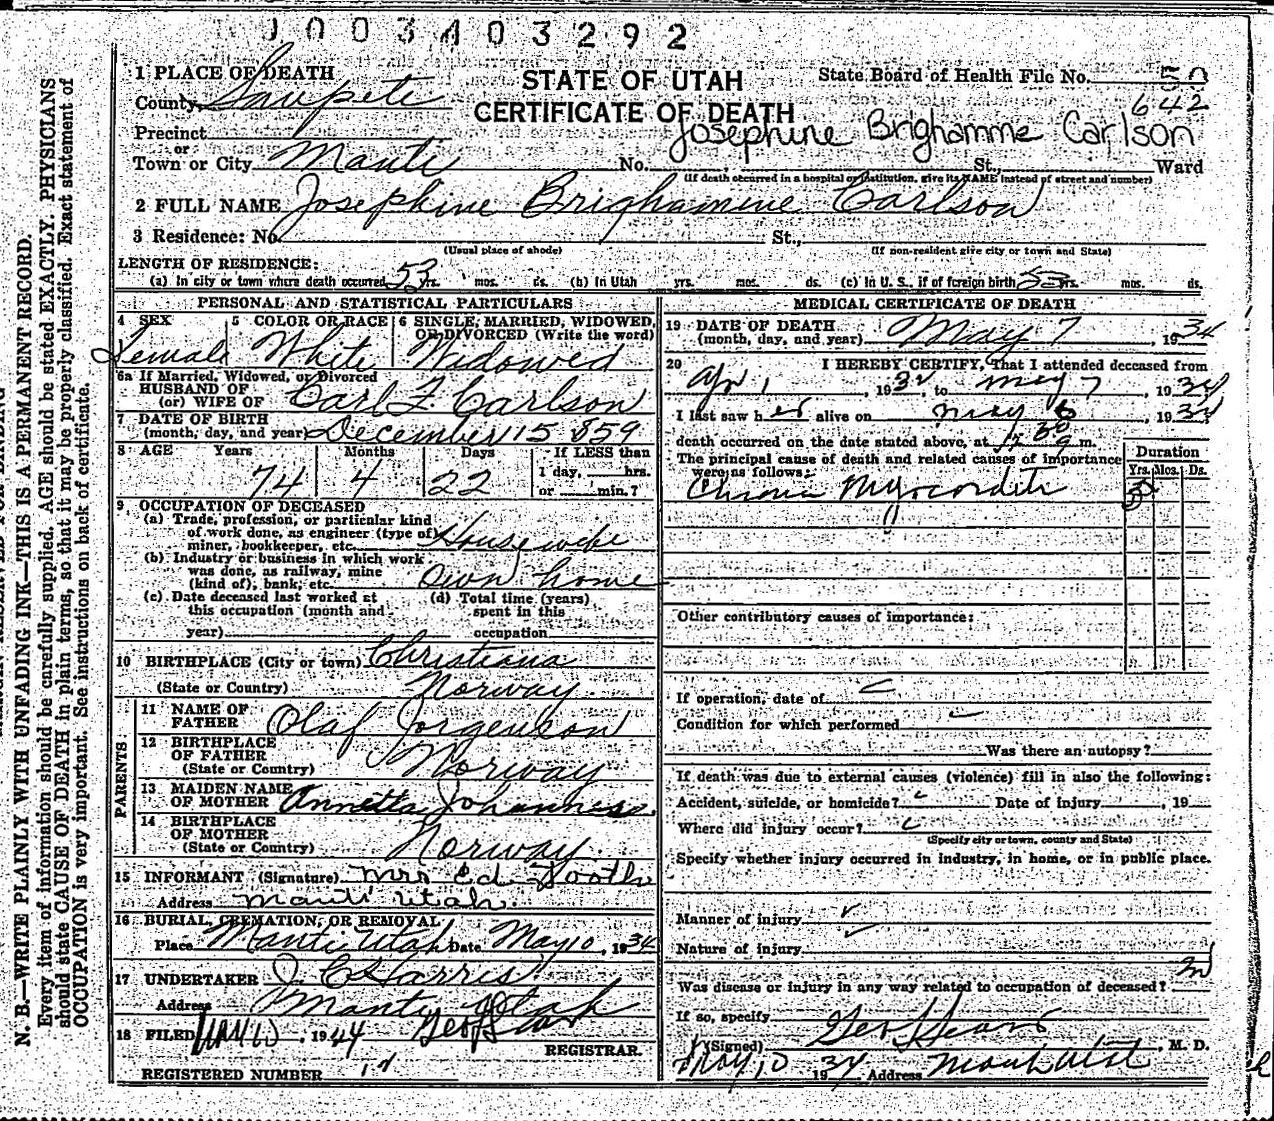 1003403292
1 PLACE OF DEATH
County Sanpete
Precinct
or
Town or City Manti
STATE OF UTAH
CERTIFICATE OF DEATH
State Board of Health File No. 50
642
Josephine Brighamme Carlson
No. St., Ward
(If death occurred in a hospital or institution, give its NAME instead of street and number)
2 FULL NAME Josephine Brighamine Carlson
3 Residence: No. St.,
(Usual place of abode) (If non-resident give city or town and State)
LENGTH OF RESIDENCE:
(a) In city or town where death occurred 53 yrs. mos. ds. (b) In Utah yrs. mos. ds. (c) In U. S., if of foreign birth 53 yrs. mos. ds.
PERSONAL AND STATISTICAL PARTICULARS
4 SEX 5 COLOR OR RACE 6 SINGLE, MARRIED, WIDOWED, OR DIVORCED (Write the word)
Female White Widowed
6a If Married, Widowed, or Divorced
HUSBAND OF
(or) WIFE OF Carl F. Carlson
7 DATE OF BIRTH
(month, day, and year) December 15 1859
8 AGE Years Months Days If LESS than
1 day, hrs.
74 4 22 or min.?
9 OCCUPATION OF DECEASED
(a) Trade, profession, or particular kind
of work done, as engineer (type of)
miner, bookkeeper, etc. Housewife
(b) Industry or business in which work
was done, as railway, mine
(kind of), bank, etc. Own home
(c) Date deceased last worked at
this occupation (month and
year)
(d) Total time (years)
spent in this
occupation
10 BIRTHPLACE (City or town) Christiana
(State or Country) Norway
PARENTS
11 NAME OF
FATHER Olaf Jorgenson
12 BIRTHPLACE
OF FATHER
(State or Country) Norway
13 MAIDEN NAME
OF MOTHER Annetta Johanness.
14 BIRTHPLACE
OF MOTHER
(State or Country) Norway
15 INFORMANT (Signature) Mrs Ed Booth
Address Manti Utah.
16 BURIAL, CREMATION, OR REMOVAL
Place Manti Utah Date May 10, 1934
17 UNDERTAKER J. C. Harris
Address Manti, Utah
18 FILED 19
REGISTRAR.
REGISTERED NUMBER
MEDICAL CERTIFICATE OF DEATH
19 DATE OF DEATH
(month, day, and year) May 7, 1934
20 I HEREBY CERTIFY, That I attended deceased from
Apr 1, 193 to May 7, 1934
I last saw her alive on May 6, 1934
death occurred on the date stated above, at m.
The principal cause of death and related causes of importance
were as follows:
Duration
Yrs. Mos. Ds.
Chronic Myocarditis
Other contributory causes of importance:
If operation, date of
Condition for which performed
Was there an autopsy?
If death was due to external causes (violence) fill in also the following:
Accident, suicide, or homicide? Date of injury , 19
Where did injury occur?
(Specify city or town, county and State)
Specify whether injury occurred in industry, in home, or in public place.
Manner of injury
Nature of injury
Was disease or injury in any way related to occupation of deceased?
If so, specify
(Signed) , M. D.
May 10 1934 Address Manti Utah
N. B.—WRITE PLAINLY WITH UNFADING INK—THIS IS A PERMANENT RECORD.
Every item of information should be carefully supplied. AGE should be stated EXACTLY. PHYSICIANS
should state CAUSE OF DEATH in plain terms, so that it may be properly classified. Exact statement of
OCCUPATION is very important. See instructions on back of certificate.